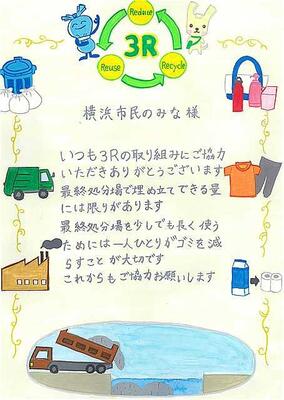 Reduce
3R
Reuse
Recycle
横浜市民のみな様
いつも3Rの取り組みにご協力
いただきありがとうございます
最終処分場で埋め立てできる量
には限りがあります
最終処分場を少しでも長く使う
ためには一人ひとりがゴミを減
らすことが大切です
これからもご協力お願いします